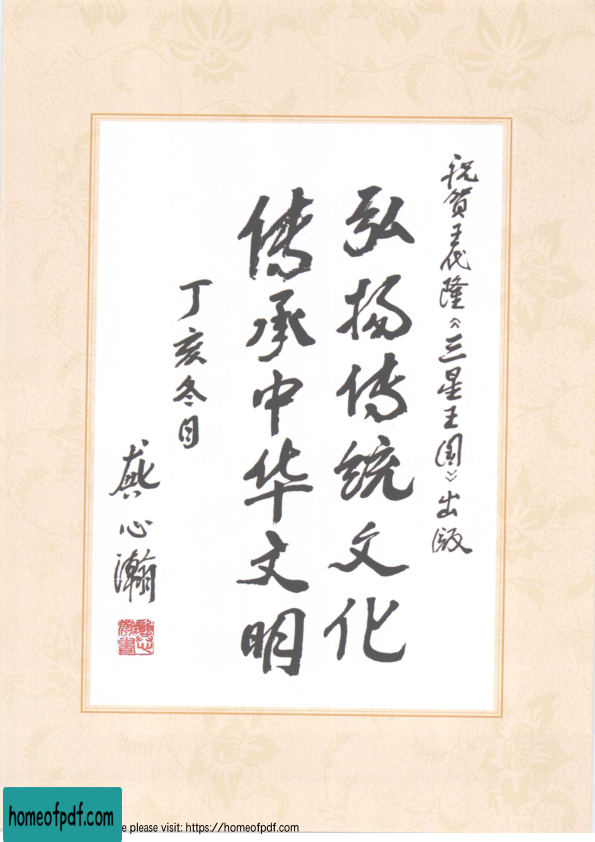 祝贺王代隆《三星王国》出版
弘扬传统文化
传承中华文明
丁亥冬日
龚心瀚
homeofpdf.com
e please visit: https://homeofpdf.com